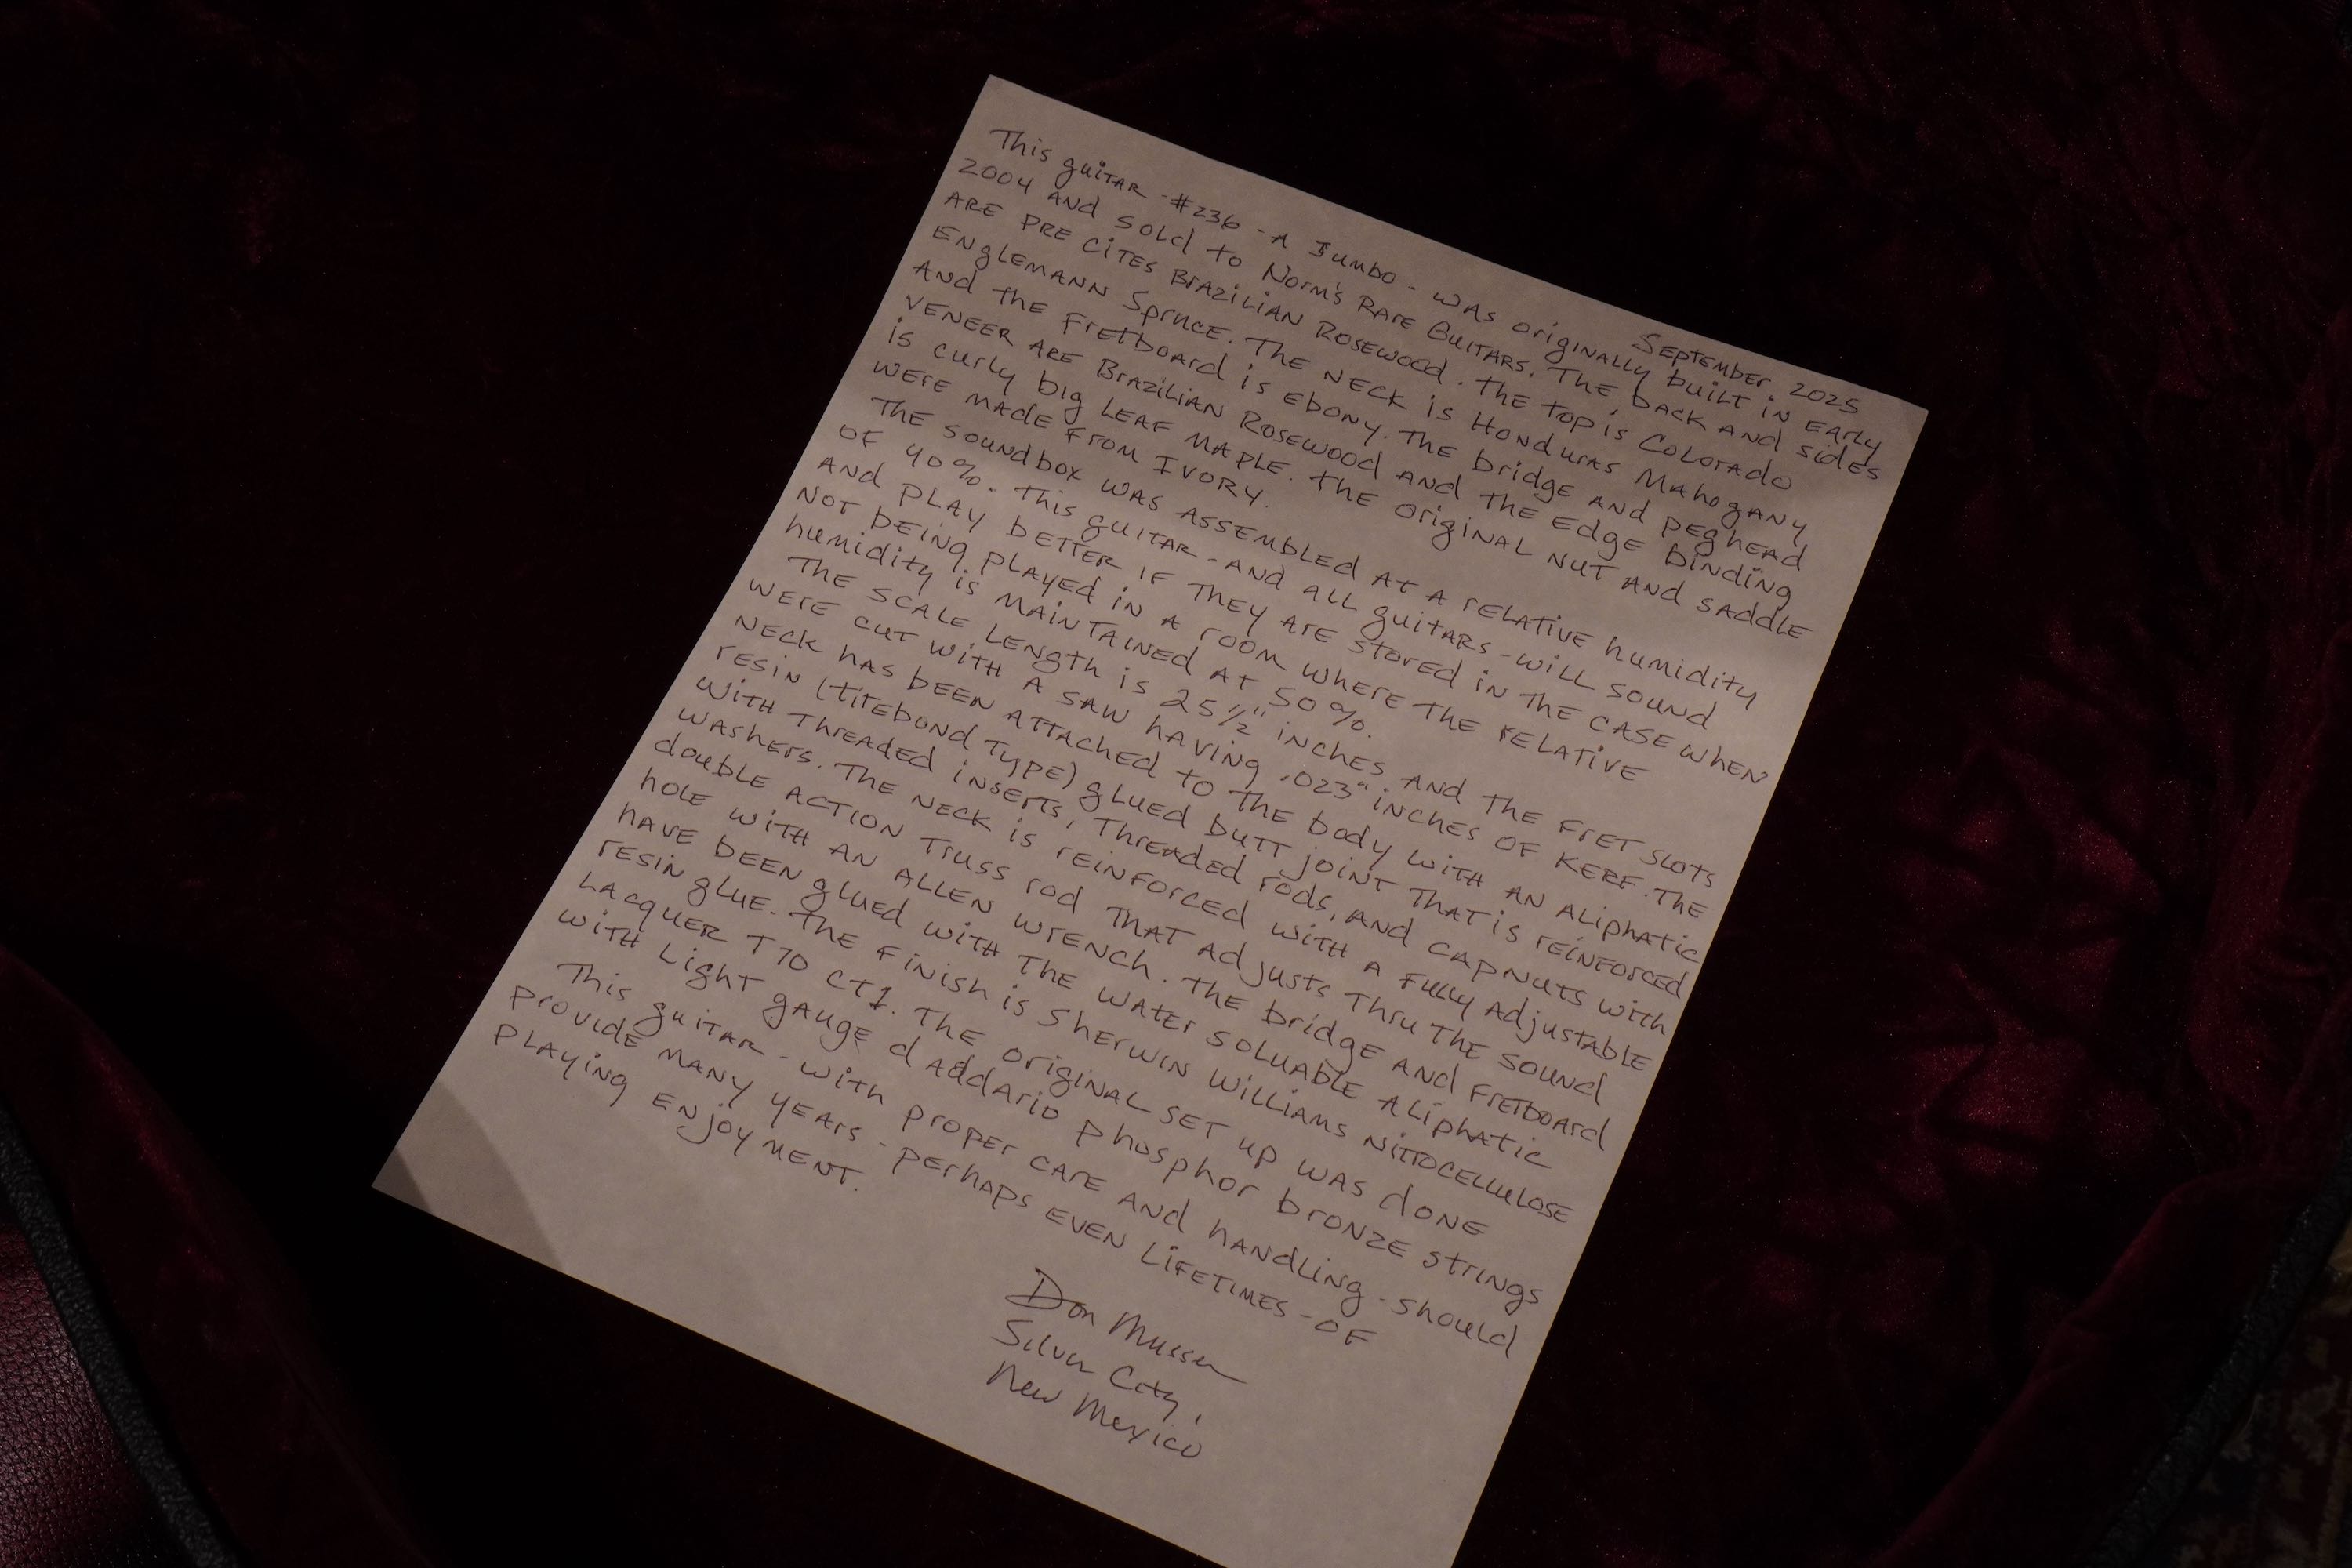 September, 2025
This guitar - #236 - A Jumbo - was originally built in early
2004 and sold to Norm's Rare Guitars. The back and sides
are pre cites Brazilian Rosewood. The top is Colorado
Englemann Spruce. The neck is Honduras Mahogany
and the fretboard is ebony. The bridge and peghead
veneer are Brazilian Rosewood and the edge binding
is curly big leaf maple. The original nut and saddle
were made from Ivory.
The soundbox was assembled at a relative humidity
of 40%. This guitar - and all guitars - will sound
and play better if they are stored in the case when
not being played in a room where the relative
humidity is maintained at 50%.
The scale length is 25½" inches and the fret slots
were cut with a saw having .023" inches of kerf. The
neck has been attached to the body with an aliphatic
resin (titebond type) glued butt joint that is reinforced
with threaded inserts, threaded rods, and capnuts with
washers. The neck is reinforced with a fully adjustable
double action truss rod that adjusts thru the sound
hole with an allen wrench. The bridge and fretboard
have been glued with the water soluable aliphatic
resin glue. The finish is Sherwin Williams nitrocellulose
lacquer T70 CT1. The original set up was done
with light gauge d'addario phosphor bronze strings
This guitar - with proper care and handling - should
provide many years - perhaps even lifetimes - of
playing enjoyment.
Don Musser
Silver City,
New Mexico